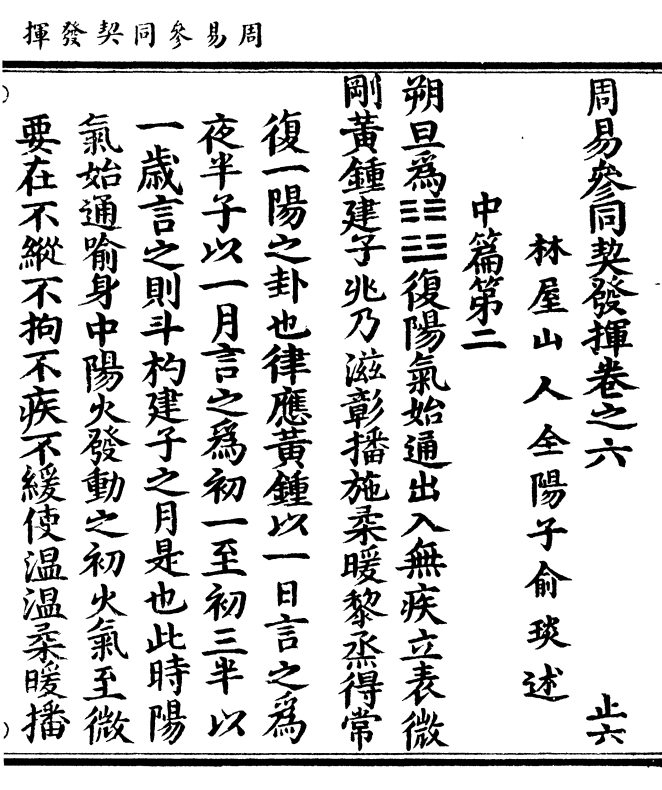 周易參同契發揮
周易參同契發揮卷之六 止六
林屋山人全陽子俞琰述
中篇第二
朔旦爲☷☳復陽氣始通出入無疾立表微
剛黃鍾建子兆乃滋彰播施柔暖黎烝得常
復一陽之卦也律應黃鍾以一日言之爲
夜半子以一月言之爲初一至初三半以
一歲言之則斗杓建子之月是也此時陽
氣始通喻身中陽火發動之初火氣至微
要在不縱不拘不疾不緩使温温柔暖播